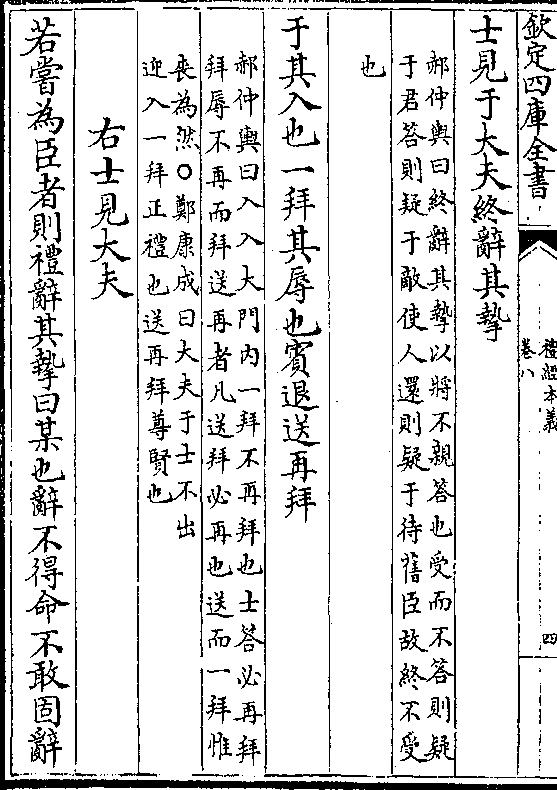 欽定四庫全書
禮經本義
卷八
四
士見于大夫終辭其摯
郝仲輿曰終辭其摯以將不親答也受而不答則疑
于君答則疑于敵使人還則疑于待舊臣故終不受
也
于其入也一拜其辱也賓退送再拜
郝仲輿曰入入大門內一拜不再拜也士答必再拜
拜辱不再而拜送再者凡送拜必再也送而一拜惟
喪為然○鄭康成曰大夫于士不出
迎入一拜正禮也送再拜尊賢也
右士見大夫
若嘗為臣者則禮辭其摯曰某也辭不得命不敢固辭